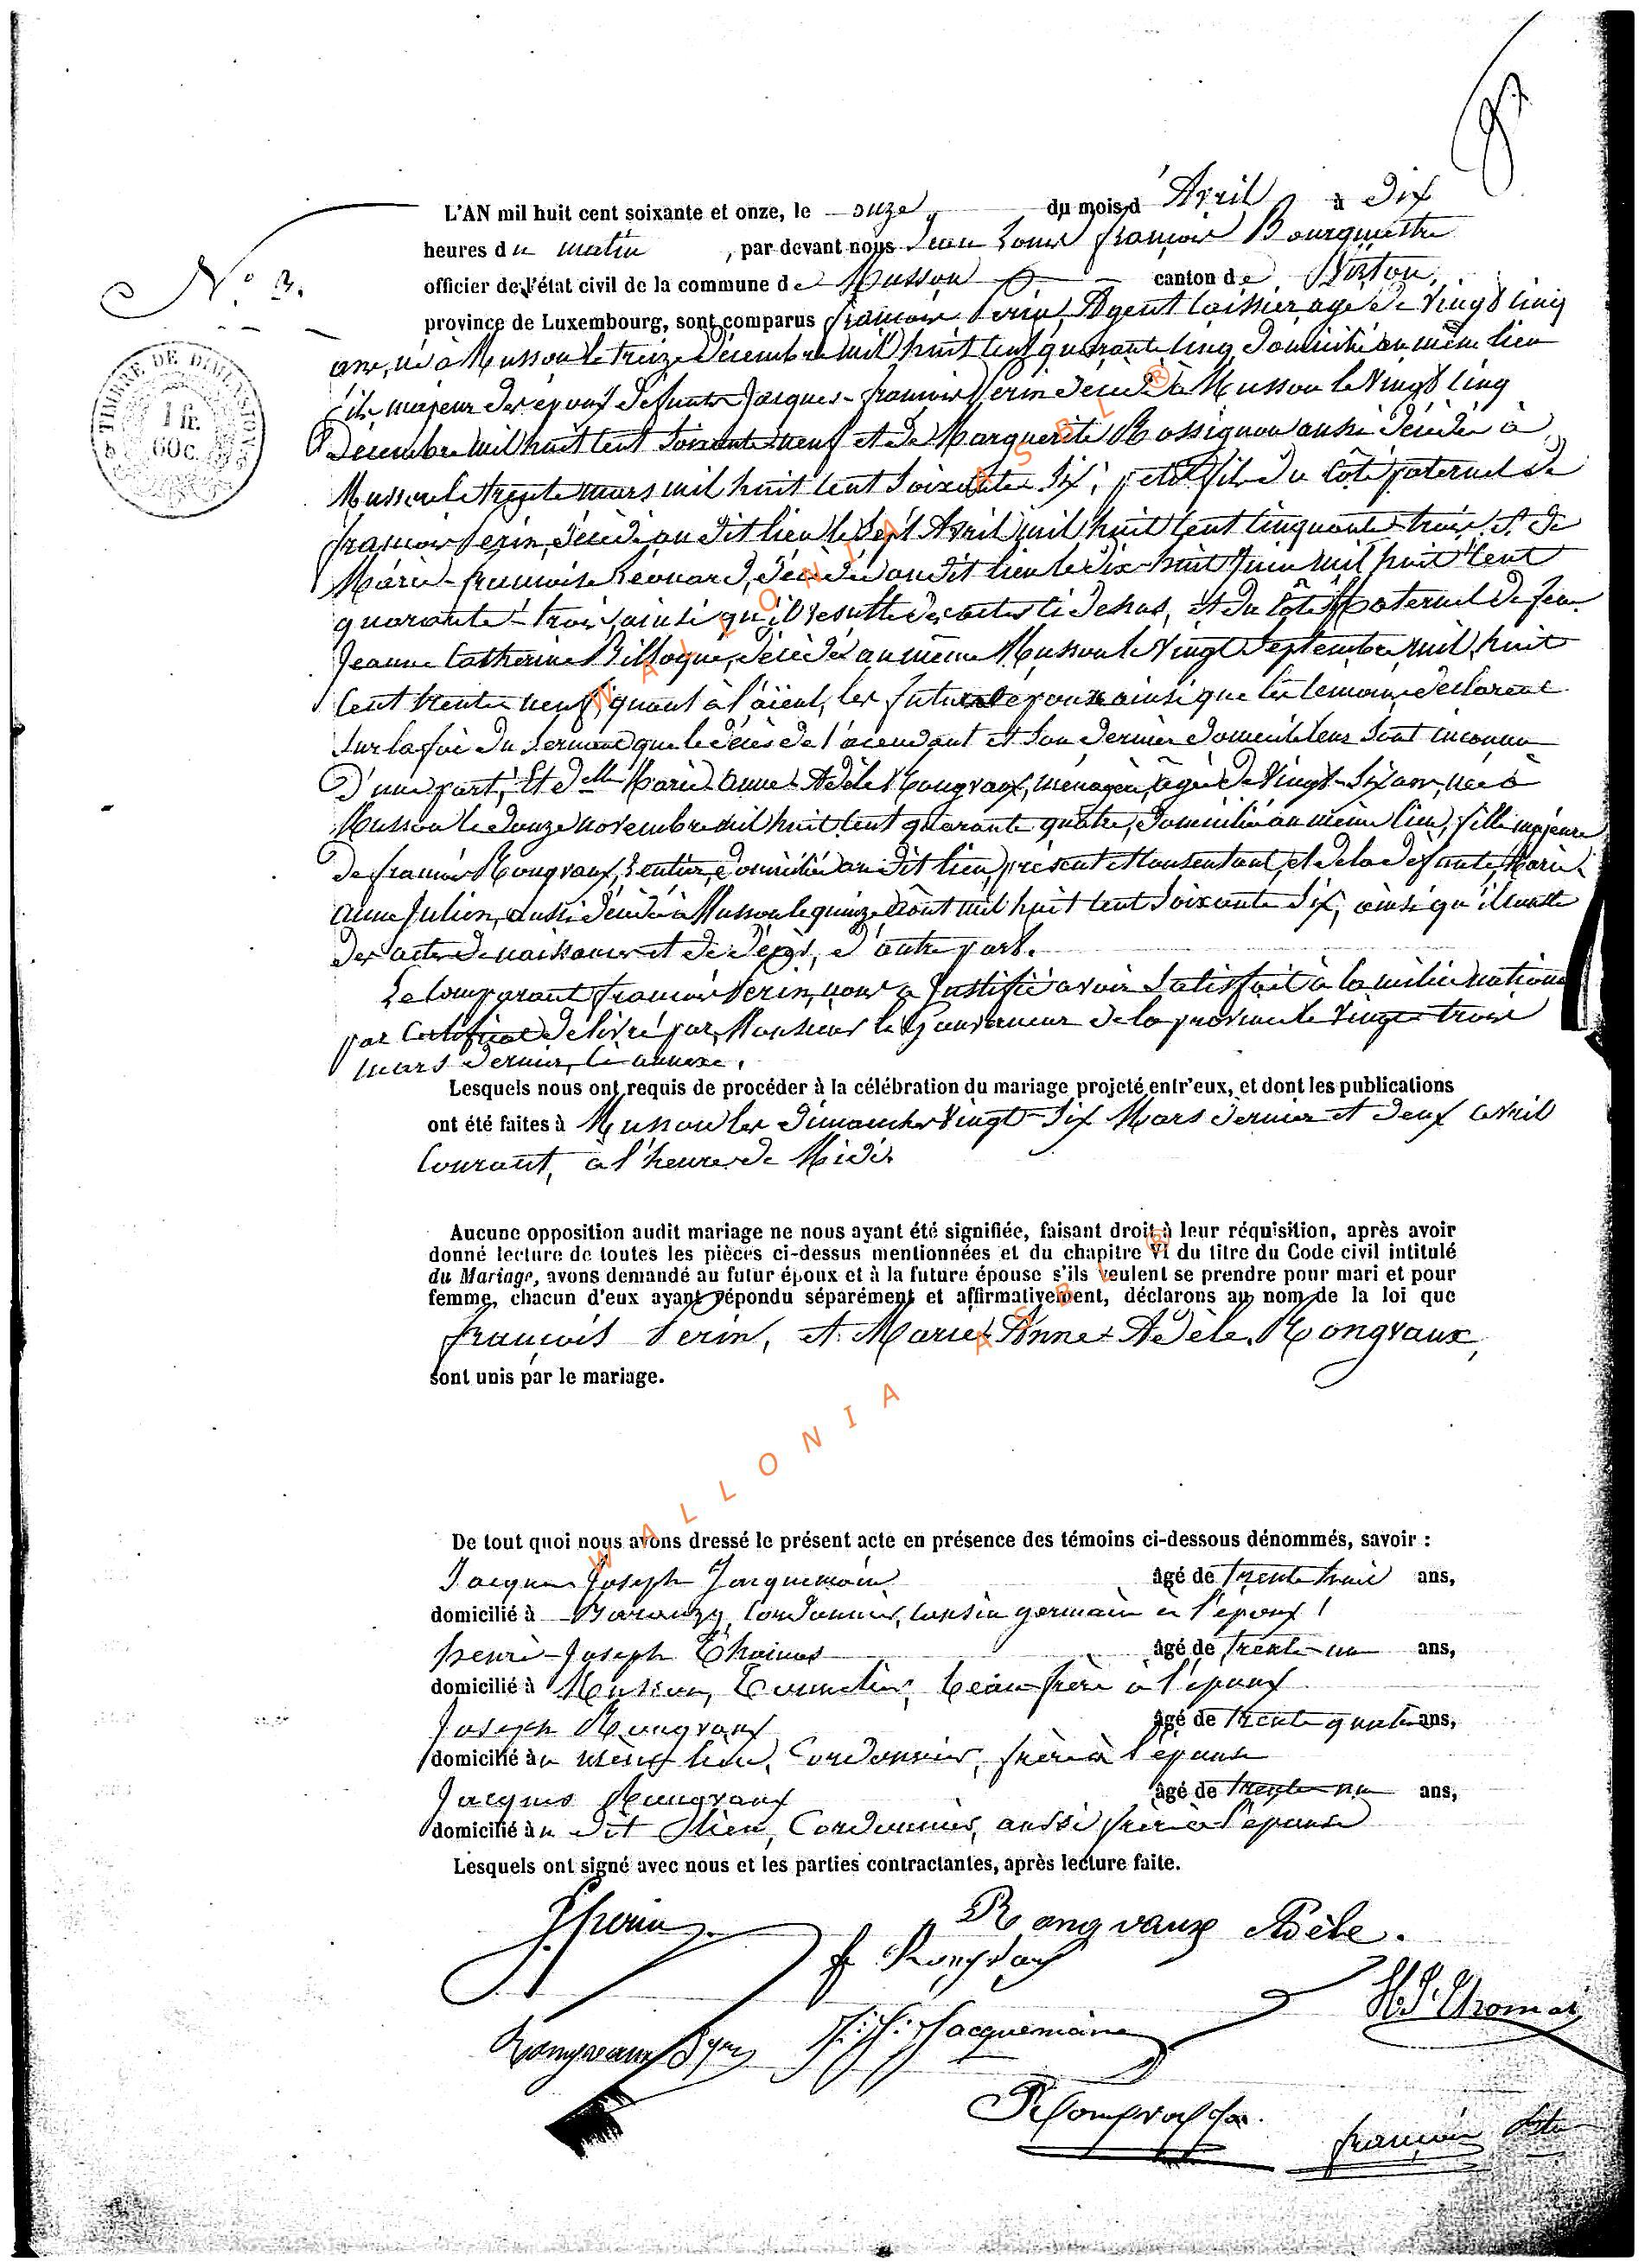 L'AN mil huit cent soixante et onze, le onze du mois d'Avril à dix
heures du matin, par devant nous Jean Louis François Bourguettre
N.° 3.
officier de l'état civil de la commune de Musson canton de Virton,
province de Luxembourg, sont comparus François Perin, Agent caissier, agé de Vingt cinq
TIMBRE DE DIMENSION
1 fr.
60 c.
ans, né à Musson le treize Décembre mil huit cent quarante cinq, domicilié au même lieu
fils majeur des époux défunts Jacques-François Perin décédé à Musson le Vingt cinq
Décembre mil huit cent soixante neuf et de Marguerite Rossignon aussi décédée à
Musson le trente mars mil huit cent soixante Six; petit fils du côté paternel de
François Perin, décédé au dit lieu le Sept Avril mil huit cent cinquante trois et de
Marie-Françoise Léonard, décédée au dit lieu le Dix-huit Juin mil huit cent
quarante-trois ainsi qu'il résulte des actes ci dessus, et du côté Maternel de feue
Jeanne Catherine décédée au même Musson le Vingt Septembre mil huit
cent trente neuf, quant à l'aïeul, les futurs époux ainsi que les temoins déclarent
sur la foi du serment que le décès de l'ascendant et son dernier domicile leur sont inconnus
D'une part, Et dlle Marie-Anne-Adèle Rongvaux, ménagère, âgée de Vingt-Six ans, née à
Musson le douze novembre mil huit cent quarante quatre, domiciliée au même lieu, fille majeure
de François Rongvaux, rentier, domicilié au dit lieu, présent et consentant, et de la défunte Marie
Anne Julien, aussi décédée à Musson le quinze Août mil huit cent soixante Six, ainsi qu'il conste
des actes de naissances et de décès, d'autre part.
Le comparant François Perin, nous a justifié avoir satisfait à la milice nationale
par certificat délivré par Monsieur le Gouverneur de la province le Vingt-trois
mars dernier, ci annexé.
Lesquels nous ont requis de procéder à la célébration du mariage projeté entr'eux, et dont les publications
ont été faites à Musson les dimanches Vingt-Six Mars dernier et deux avril
courant, à l'heure de Midi.
Aucune opposition audit mariage ne nous ayant été signifiée, faisant droit à leur réquisition, après avoir
donné lecture de toutes les pièces ci-dessus mentionnées et du chapitre VI du titre du Code civil intitulé
du Mariage, avons demandé au futur époux et à la future épouse s'ils veulent se prendre pour mari et pour
femme, chacun d'eux ayant répondu séparément et affirmativement, déclarons au nom de la loi que
François Perin, et Marie-Anne-Adèle Rongvaux,
sont unis par le mariage.
WALLONIA ASBL ®
De tout quoi nous avons dressé le présent acte en présence des témoins ci-dessous dénommés, savoir :
Jacques Joseph Jacquemain âgé de trente trois ans,
domicilié à Baranzy, Cordonnier, cousin germain à l'époux;
Henri-Joseph Thomas âgé de trente-un ans,
domicilié à Musson, Tonnelier, beau frère à l'époux
Joseph Rongvaux âgé de trente quatre ans,
domicilié au même lieu, Cordonnier, frère à l'épouse
Jacques Rongvaux âgé de trente-un ans,
domicilié au dit lieu, Cordonnier, aussi frère à l'épouse
Lesquels ont signé avec nous et les parties contractantes, après lecture faite.
Rongvaux Adèle.
Rongvaux
H. J. Thomas
Rongvaux J. J. Jacquemain
Rongvaux
François